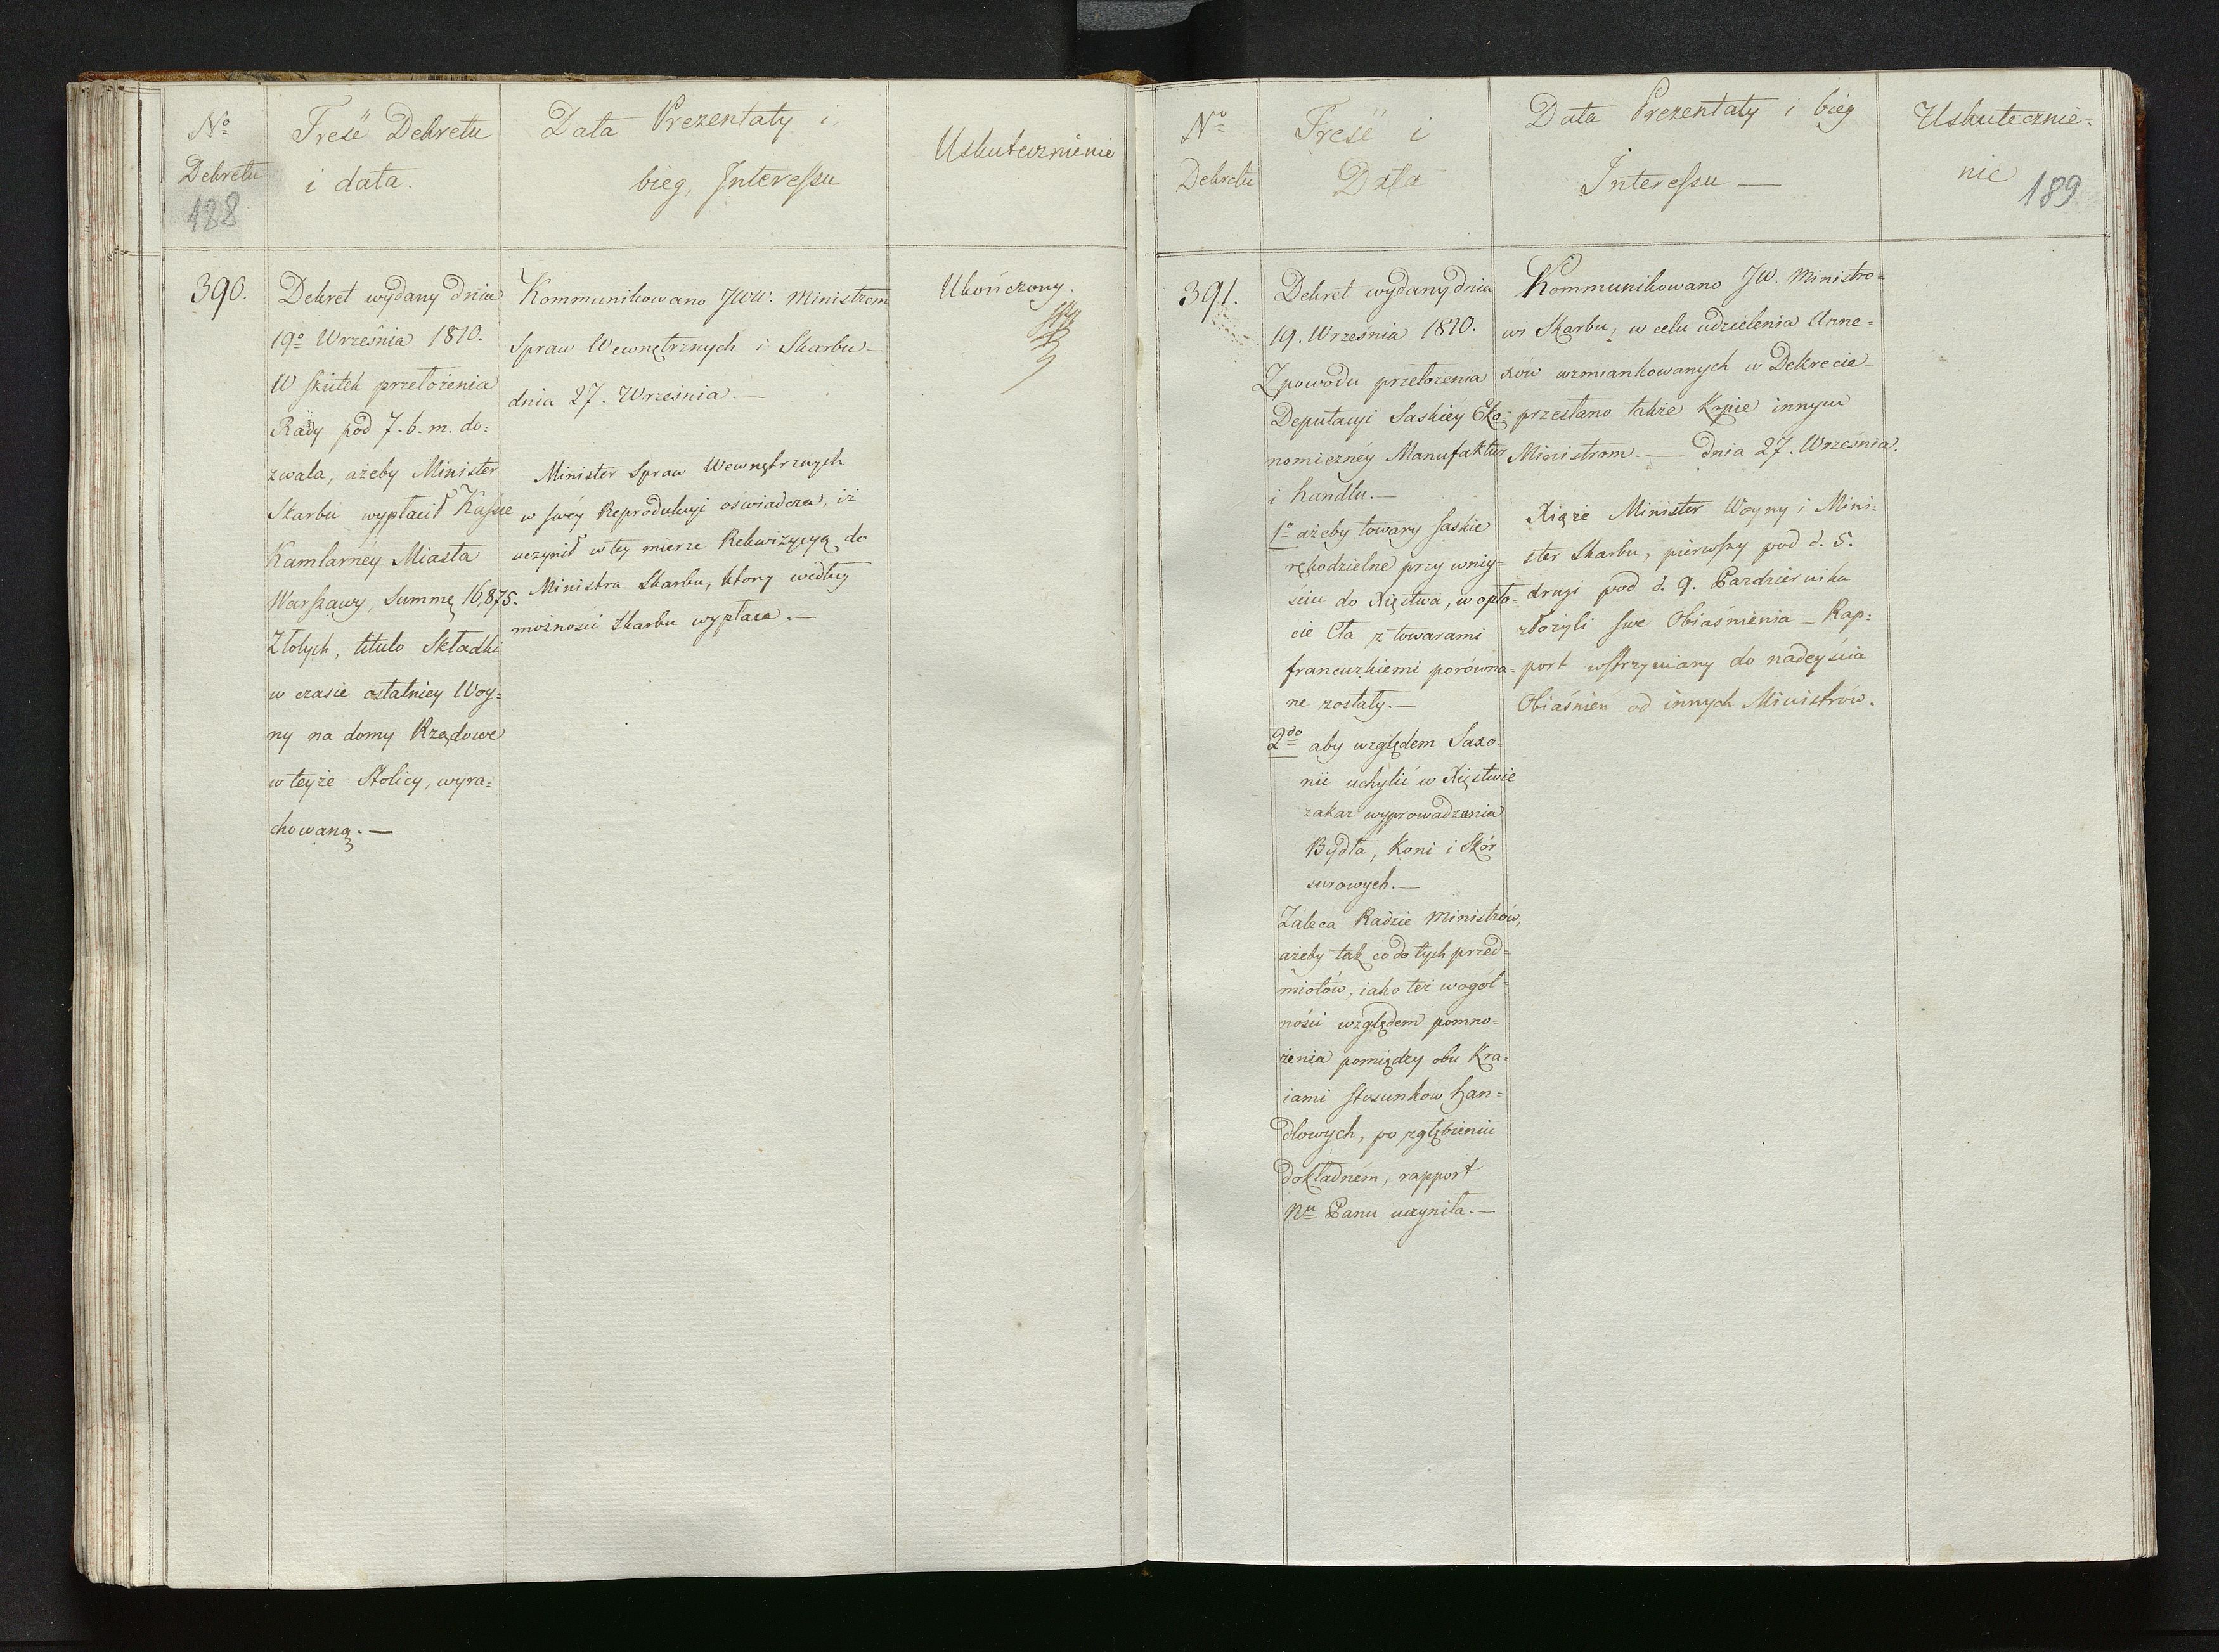 No
Dekretu
188
Treść Dekretu
i data.
Data Prezentaty i
bieg, Interessu
Uskutecznienie
390.
Dekret wydany dnia
19o Września 1810.
W skutek przełożenia
Rady pod 7. b. m. do=
zwala, ażeby Minister
Skarbu wypłacił Kassie
Kamlarnéy Miasta
Warszawy, Summę 16,875.
Złotych, titulo Składki
w czasie ostatniey Woy=
ny na domy Rządowe
w teyże Stolicy, wyra=
chowaną.—
Kommunikowano JWW. Ministrom
Spraw Wewnętrznych i Skarbu—
dnia 27. Września.—
Minister Spraw Wewnętrznych
w swéy Reprodukcyi oświadcza, iż
uczynił w tey mierze Rekwizycyą do
Ministra Skarbu, ktory według
możności Skarbu wypłaca.—
Ukończony.
No
Dekretu
Treść i
Data
Data Prezentaty i bieg
Interessu —
Uskutecznie=
nie
189
391.
Dekret wydany dnia
19. Września 1810.
Z powodu przełożenia
Deputacyi Saskiéy Eko=
nomiczney Manufaktur
i handlu.—
1o ażeby towary saskie
rękodzielne przy wniy=
ściu do Xięstwa, w opła=
cie Cła z towarami
francuzkiemi porówna=
ne zostały.—
2do aby względem Saxo=
nii uchylić w Xięstwie
zakaz wyprowadzania
Bydła, Koni i Skór
surowych.—
Zaleca Radzie Ministrów,
ażeby tak co do tych przed=
miotów, iako też w ogól=
ności względem pomno=
żenia pomiędzy obu Kra=
iami stosunkow han=
dlowych, po zgłębieniu
dokładném, rapport
Nu Panu uczyniła.—
Kommunikowano JW. Ministro=
wi Skarbu, w celu udzielenia Anne=
xów wzmiankowanych w Dekrecie—
przesłano także Kopie innym
Ministrom.— dnia 27. Września.
Xiąże Minister Woyny i Mini=
ster Skarbu, pierwszy pod d. 5.
drugi pod d. 9. Pazdziernika
złożyli swe Obiaśnienia — Rap=
port wstrzymany do nadeyscia
Obiaśnień od innych Ministrów.